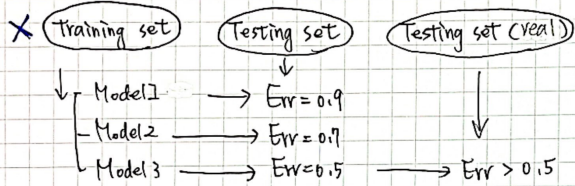 × Training set Testing set Testing set (real)
Model1 → Err = 0.9
Model2 → Err = 0.7
Model 3 → Err=0.5 → Err > 0.5